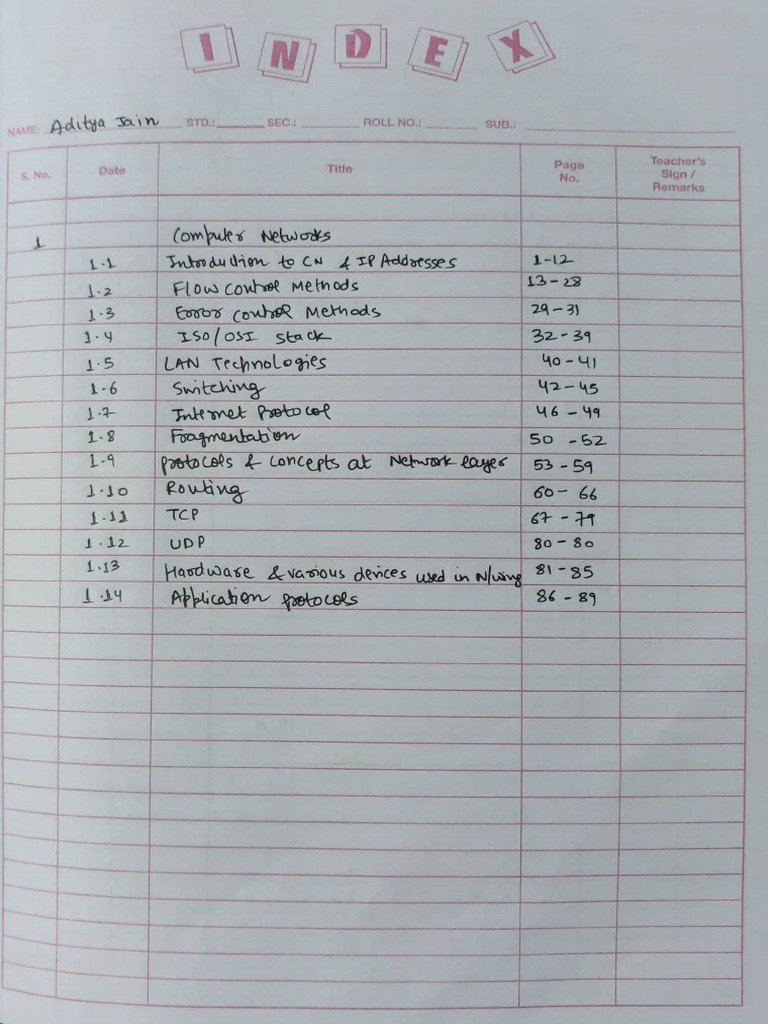 INDEX
NAME: Aditya Jain STD.: SEC.: ROLL NO.: SUB.:
S. No. Date Title Page No. Teacher's Sign / Remarks
1 Computer Networks
1.1 Introduction to CN & IP Addresses 1-12
1.2 Flow Control Methods 13-28
1.3 Error Control Methods 29-31
1.4 ISO/OSI Stack 32-39
1.5 LAN Technologies 40-41
1.6 Switching 42-45
1.7 Internet Protocol 46-49
1.8 Fragmentation 50-52
1.9 Protocols & Concepts at Network layer 53-59
1.10 Routing 60-66
1.11 TCP 67-79
1.12 UDP 80-80
1.13 Hardware & various devices used in N/wing 81-85
1.14 Application protocols 86-89